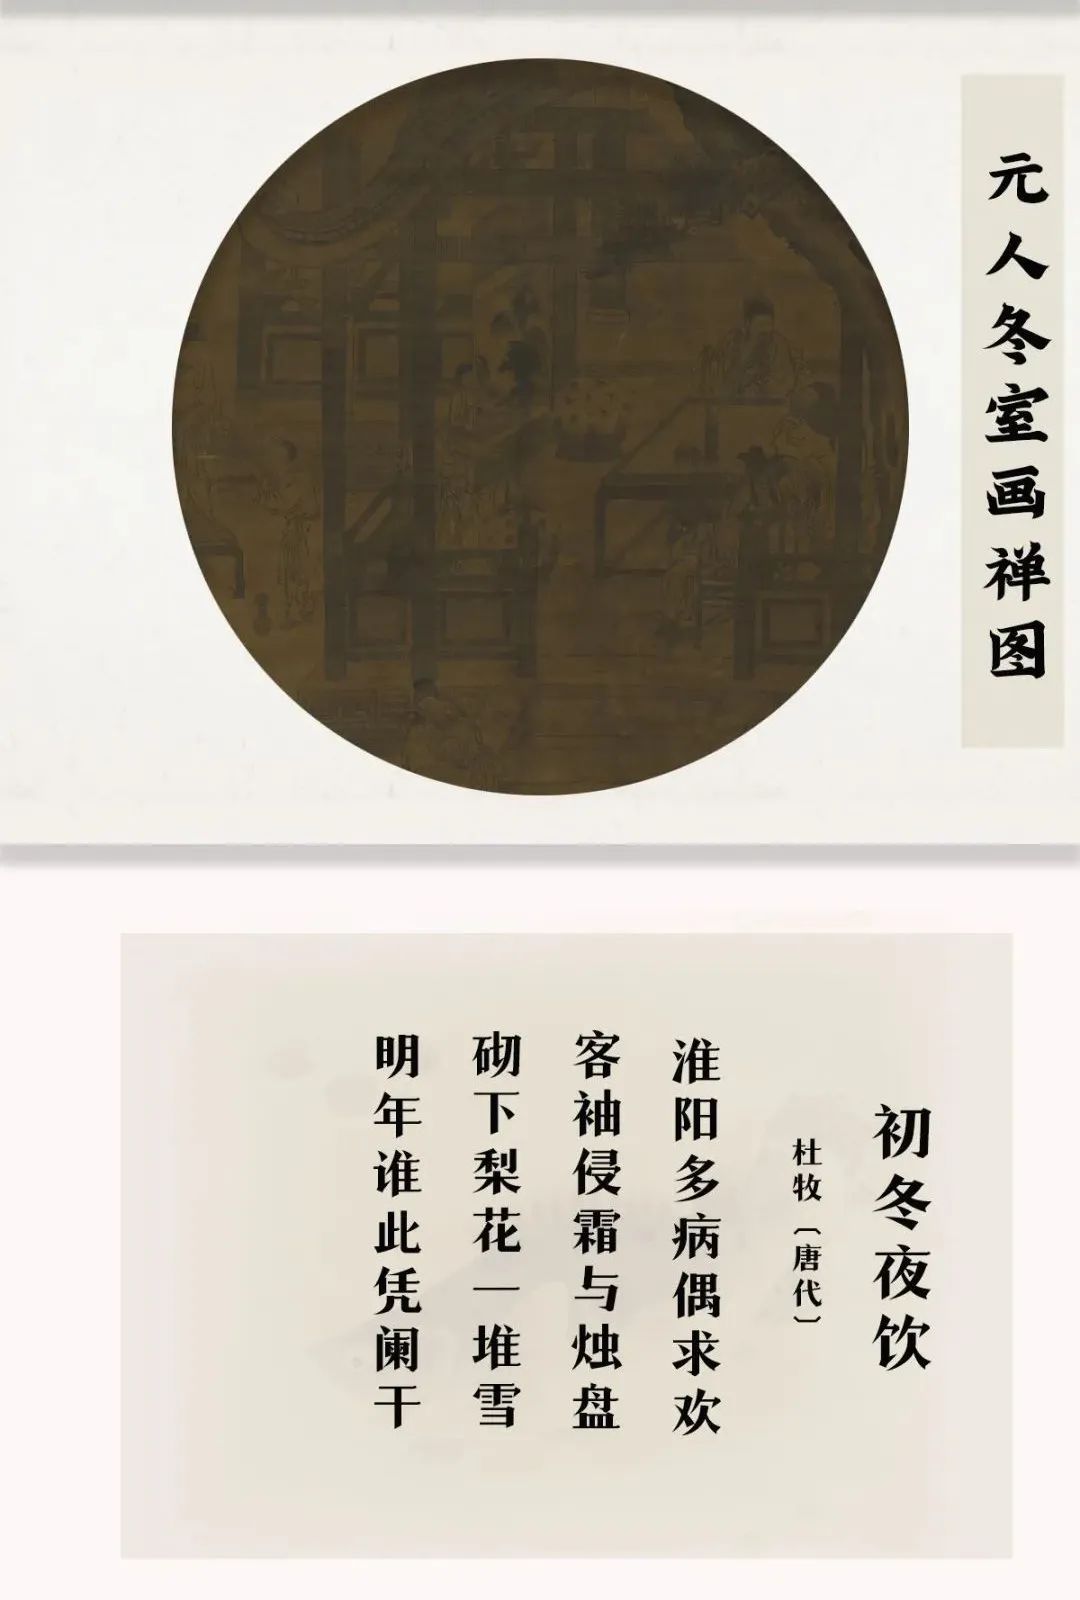 元人冬室画禅图
初冬夜饮
杜牧〔唐代〕
淮阳多病偶求欢
客袖侵霜与烛盘
砌下梨花一堆雪
明年谁此凭阑干